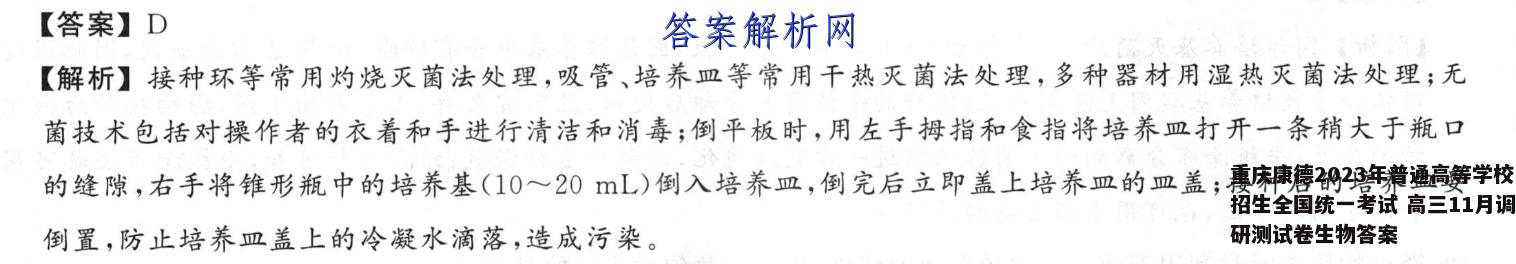 【答案】D
答案解析网
【解析】接种环等常用灼烧灭菌法处理,吸管、培养皿等常用干热灭菌法处理,多种器材用湿热灭菌法处理;无
菌技术包括对操作者的衣着和手进行清洁和消毒;倒平板时,用左手拇指和食指将培养皿打开一条稍大于瓶口
的缝隙,右手将锥形瓶中的培养基(10～20 mL)倒入培养皿,倒完后立即盖上培养皿的皿盖;接种后的培养皿要
倒置,防止培养皿盖上的冷凝水滴落,造成污染。
重庆康德2023年普通高等学校
招生全国统一考试 高三11月调
研测试卷生物答案